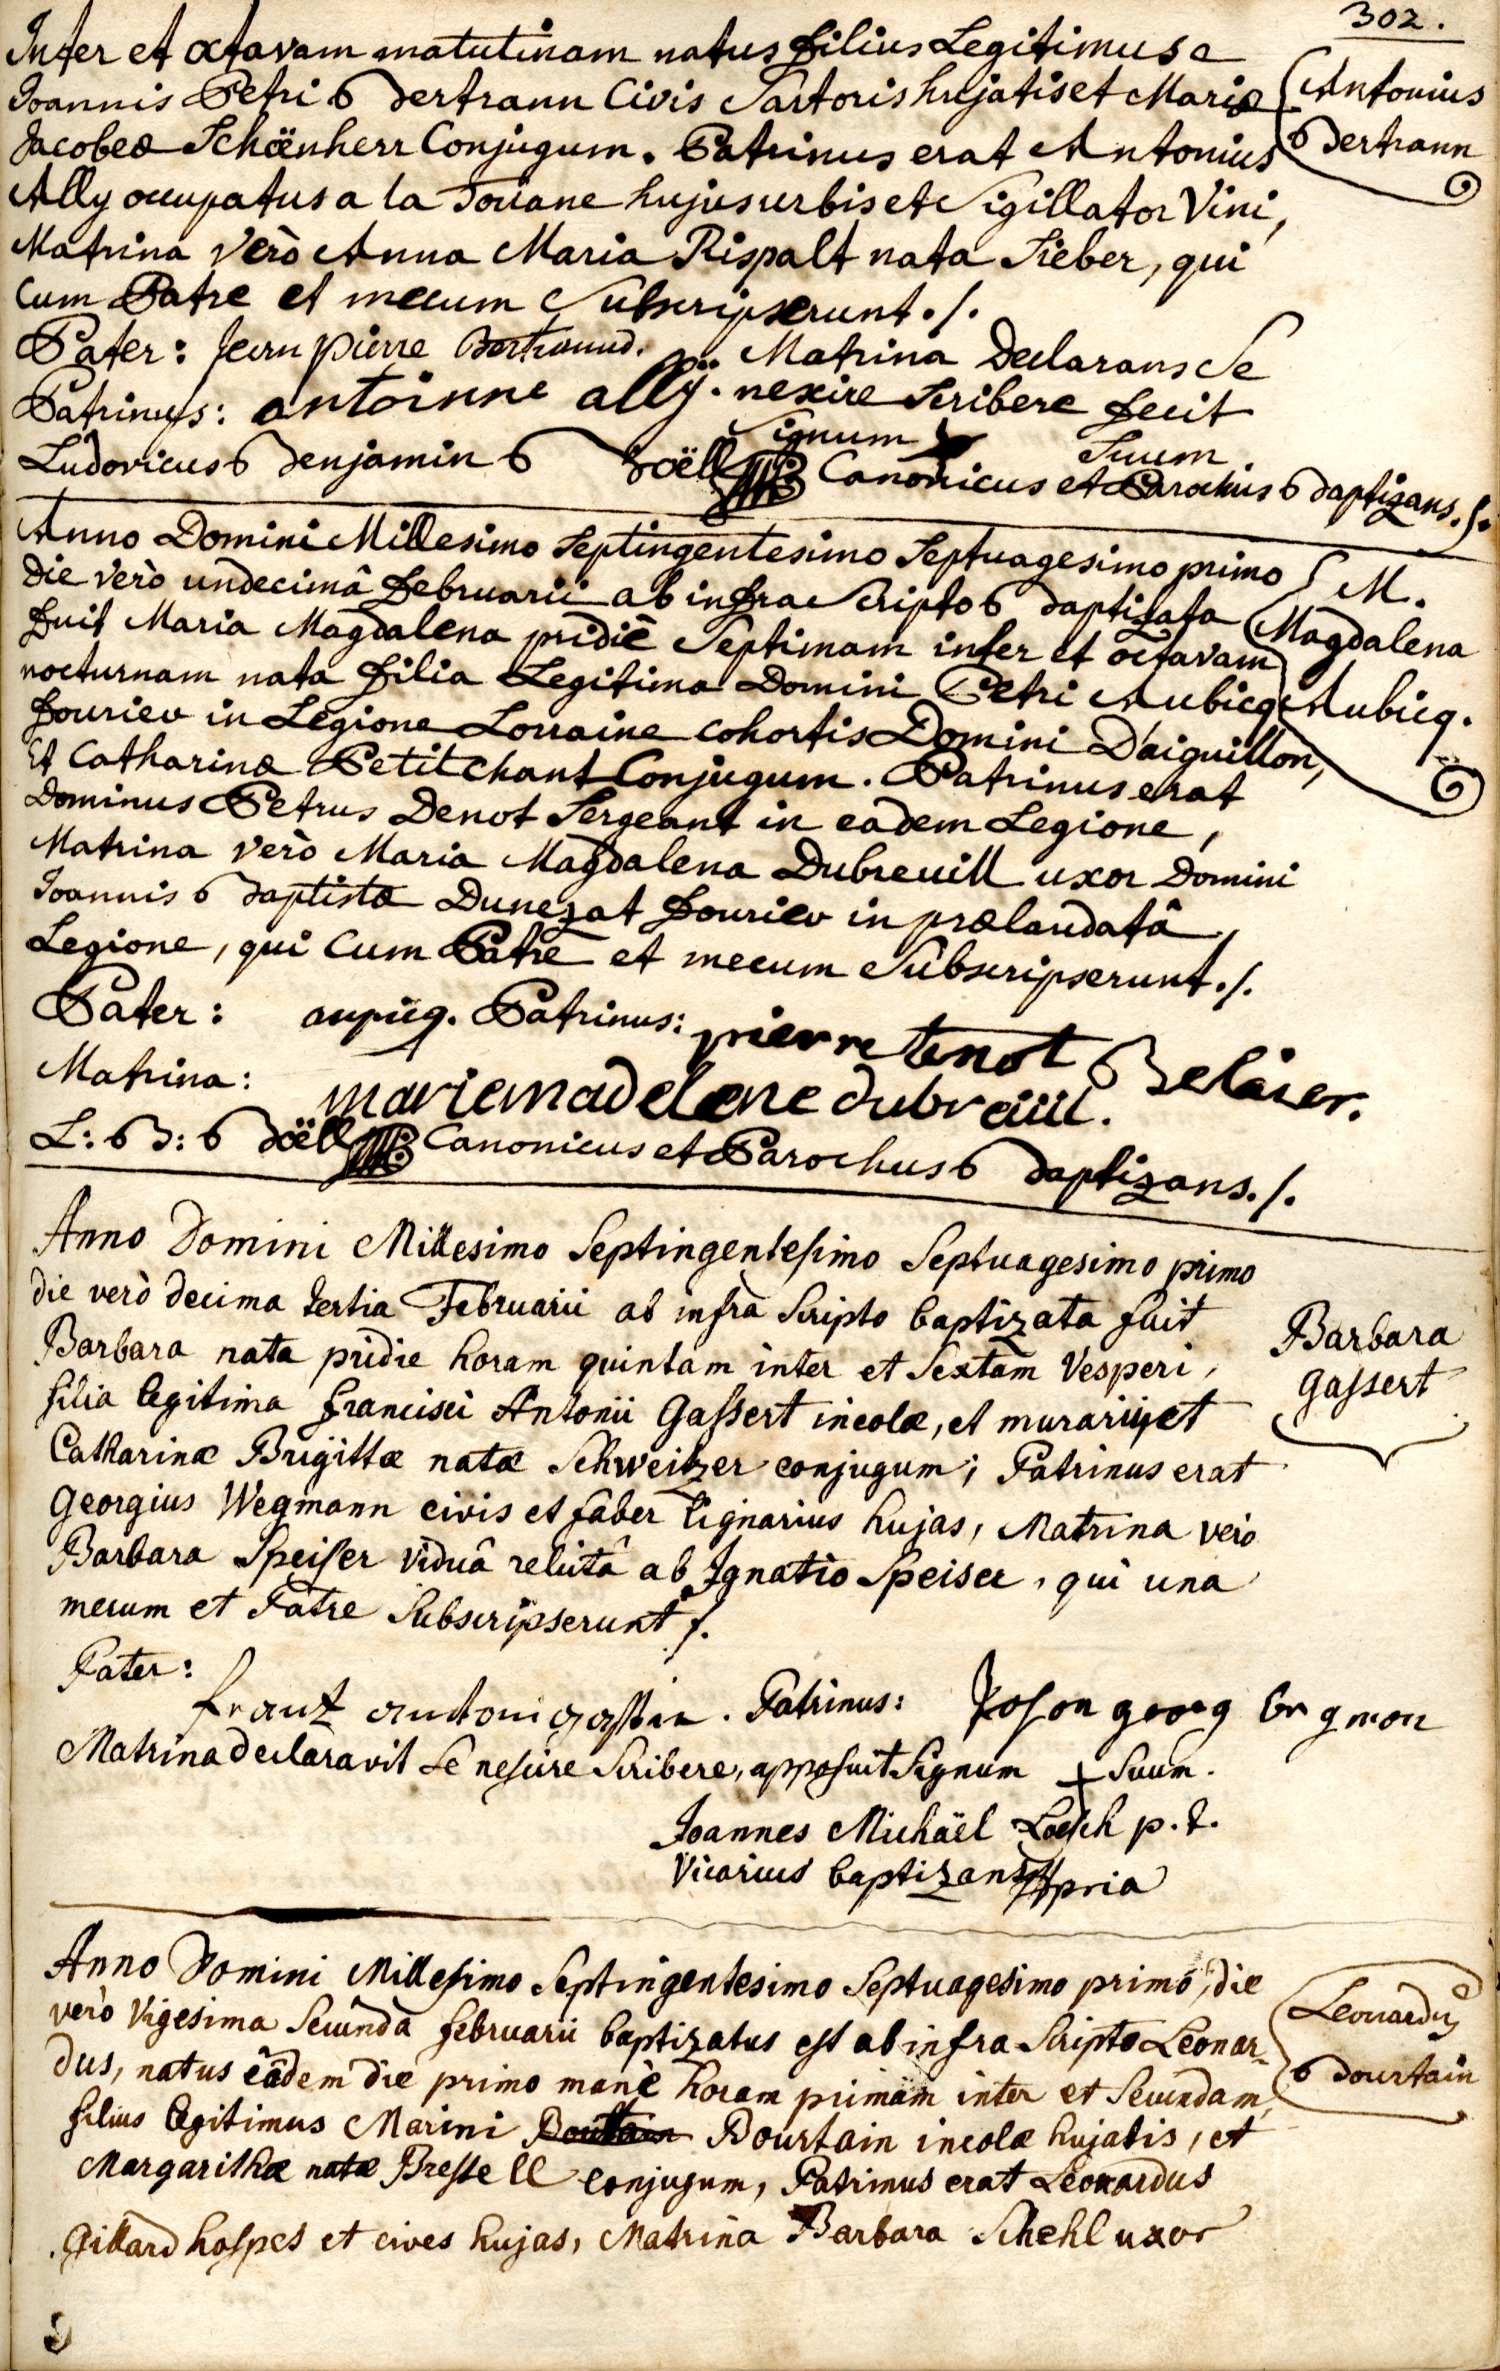 302.
Inter et octavam matutinam natus filius Legitimus
Joannis Petri Bertrann Civis Sartoris hujatis et Mariæ
Jacobeæ Schöenherr Conjugum. Patrinus erat Antonius
Ally occupatus a la Douane hujus urbis et Sigillator Vini,
Matrina verò Anna Maria Rispalt nata Sieber, qui
Cum Patre et mecum Subscripserunt ./.
Antonius
Bertrann
Pater: Jean pierre Bertrannd. Matrina Declarans Se
Patrinus: antoinne allÿ. nescire Scribere fecit
Signum Suum
Ludovicus Benjamin Boëll Canonicus et Parochus Baptizans ./.
Anno Domini Millesimo Septingentesimo Septuagesimo primo
die verò undecimâ Februarii ab infra Scripto Baptizata
fuit Maria Magdalena pridiè Septimam inter et octavam
nocturnam nata filia Legitima Domini Petri Aubicq
fourier in Legione Lorraine cohortis Domini D'aiguillon,
et Catharinæ Petitchant Conjugum. Patrinus erat
Dominus Petrus Denot Sergeant in eadem Legione,
Matrina verò Maria Magdalena Dubreuill uxor Domini
Joannis Baptistæ Dunezat fourier in prælaudatâ
Legione, qui Cum Patre et mecum Subscripserunt ./.
M.
Magdalena
Aubicq.
Pater: aupicq. Patrinus: pierre tenot Belaier.
Matrina: mariemadelene dubreüill.
L: B: Boëll Canonicus et Parochus Baptizans ./.
Anno Domini Millesimo Septingentesimo Septuagesimo primo
die verò decima tertia Februarii ab infra Scripto baptizata fuit
Barbara nata pridie horam quintam inter et Sextam Vesperi,
filia legitima Francisci Antonii Gassert incolæ, et murarii, et
Catharinæ Brigittæ natæ Schweitzer conjugum; Patrinus erat
Georgius Wegmann civis et faber lignarius hujas, Matrina verò
Barbara Speiser viduâ relictâ ab Ignatio Speiser, qui una
mecum et Patre Subscripserunt ./.
Barbara
Gassert
Pater: frantz antoni gasser. Patrinus: georg
Matrina declaravit Se nescire Scribere, apposuit Signum + Suum.
Joannes Michäel Loesch p. t.
Vicarius baptizans mpria
Anno Domini Millesimo Septingentesimo Septuagesimo primo, die
verò Vigesima Secunda februarii baptizatus est ab infra Scripto Leonar-
dus, natus eâdem die primo manè horam primam inter et Secundam,
filius legitimus Marini Bourtain incolæ hujatis, et
Margarithæ natæ Bressell conjugum, Patrinus erat Leonardus
Gillard hospes et cives hujas, Matrina Barbara Schehl uxor
Leonardus
Bourtain